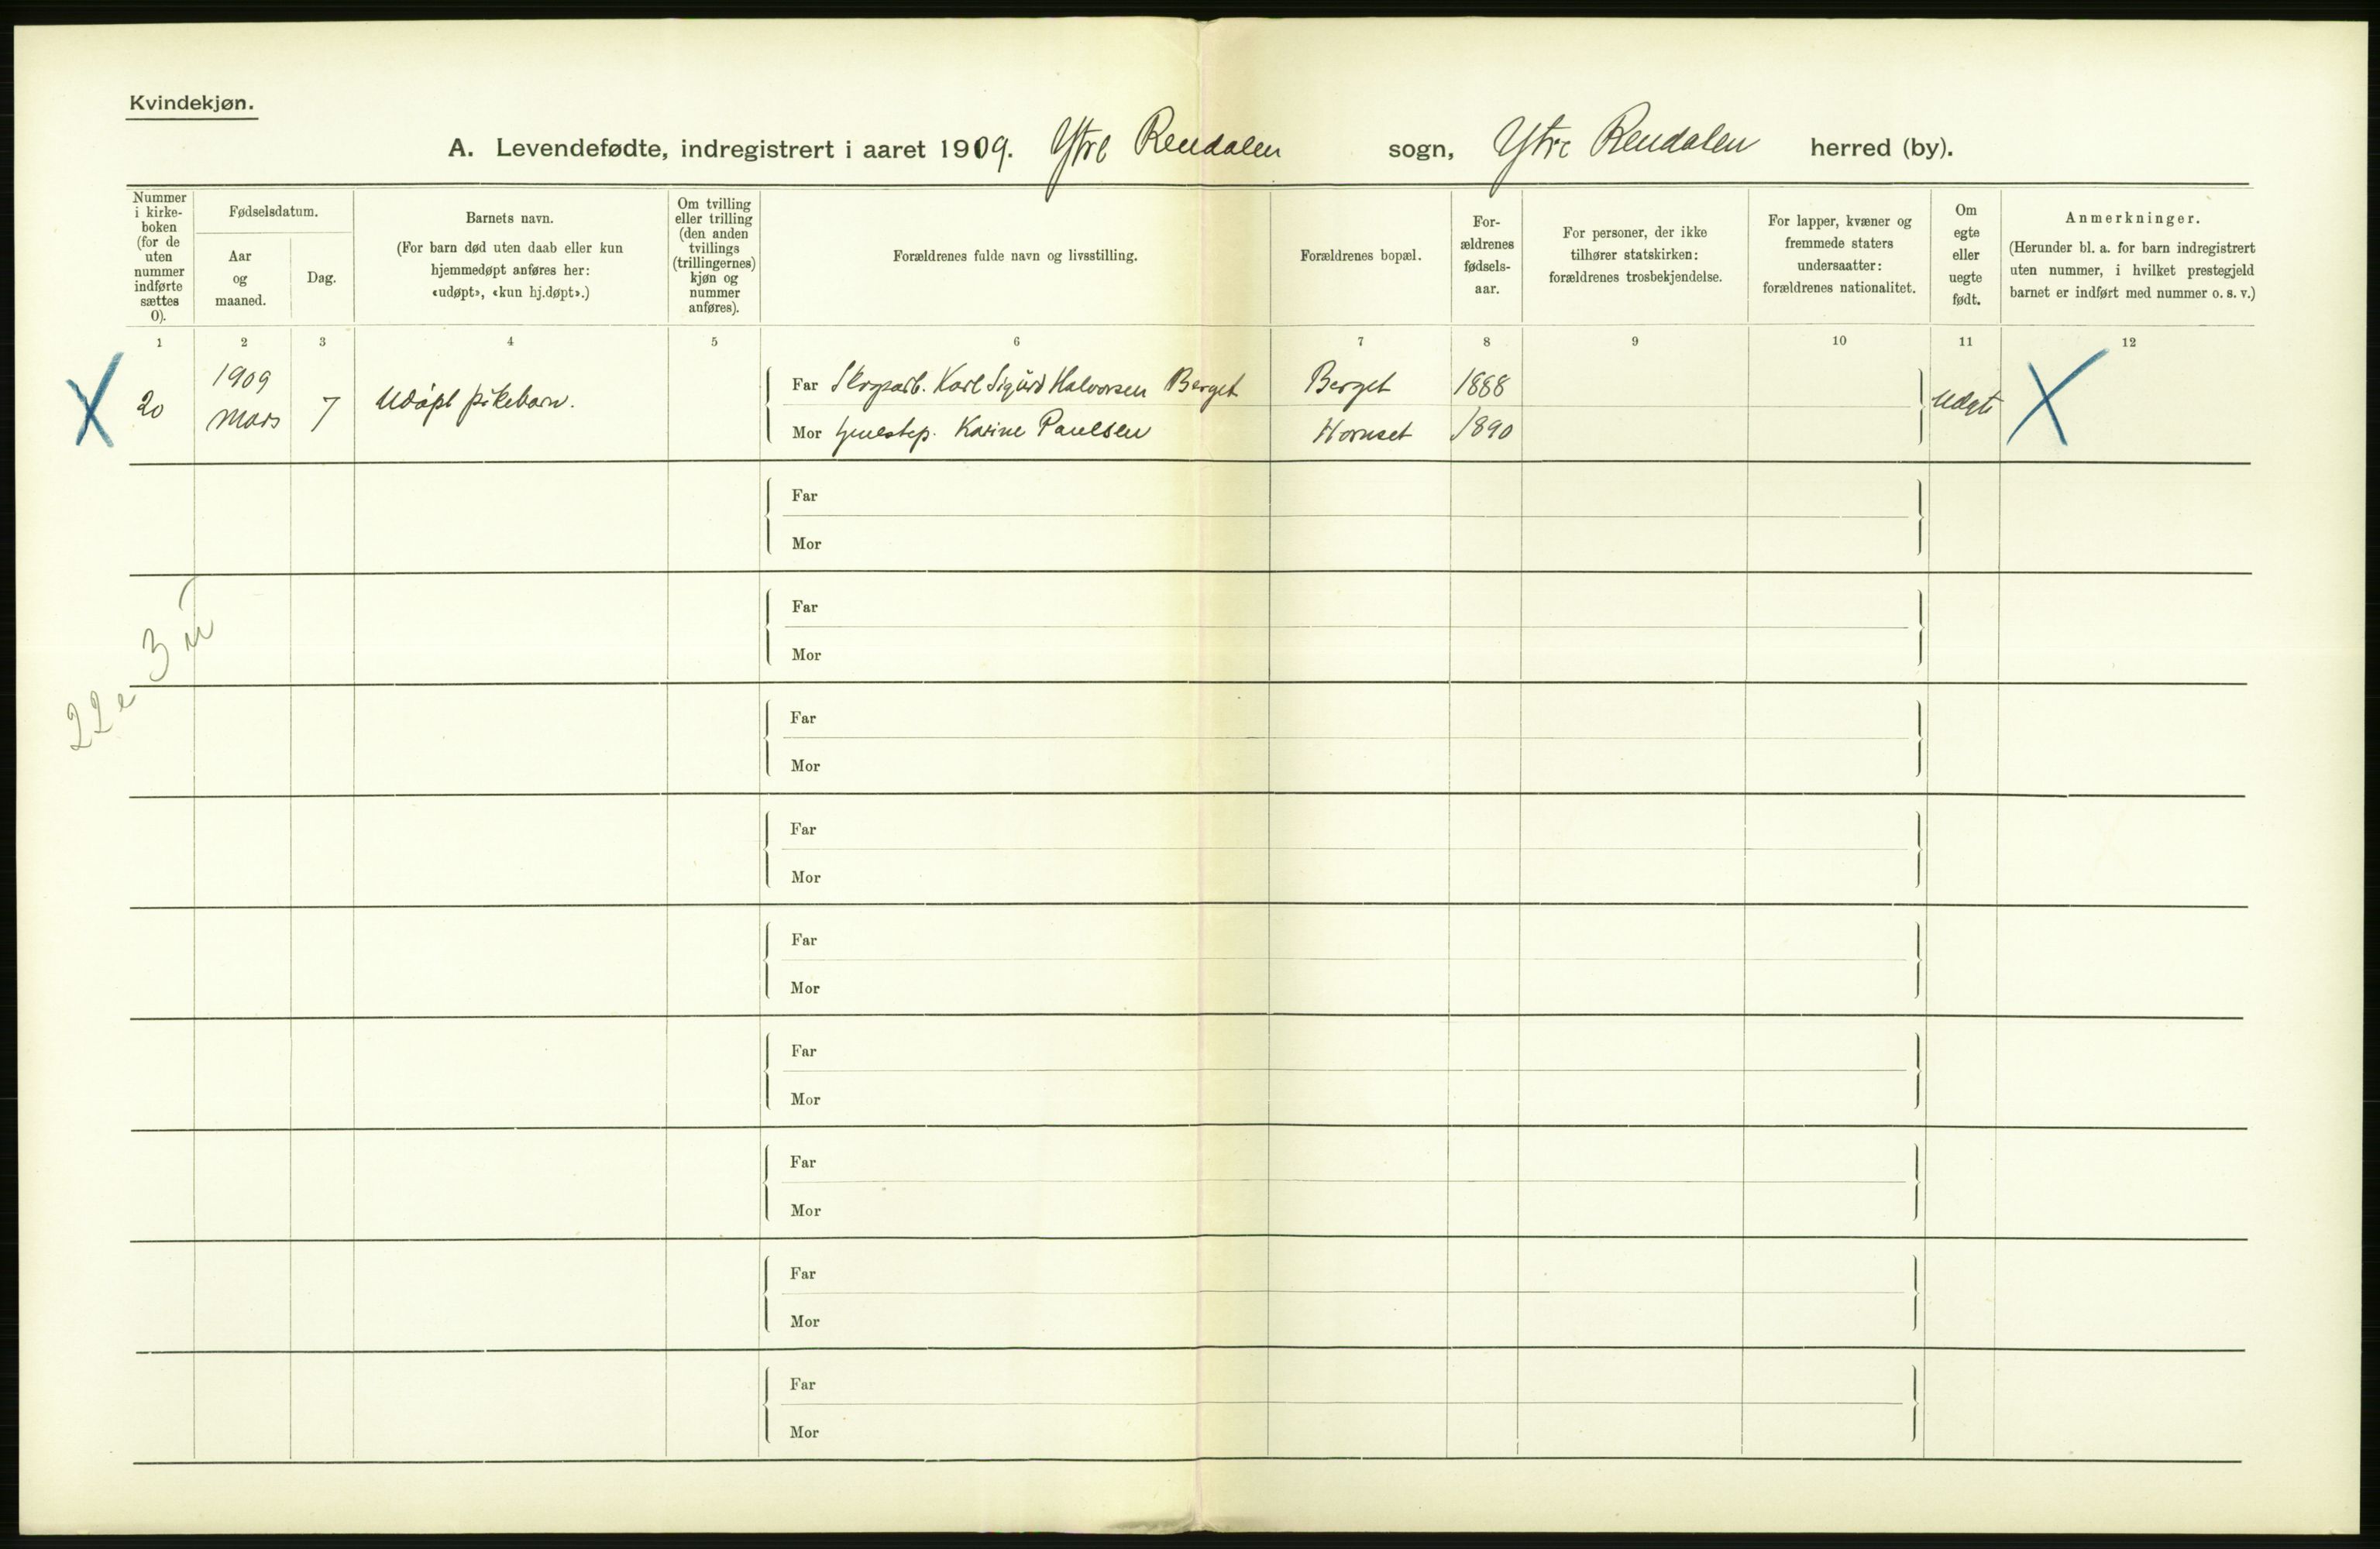 Kvindekjøn.
A. Levendefødte, indregistrert i aaret 1909. Ytre Rendalen sogn, Ytre Rendalen herred (by).
Nummer i kirke- boken (for de uten nummer indførte sættes 0).
Fødselsdatum.
Aar og maaned.
Dag.
Barnets navn.
(For barn død uten daab eller kun hjemmedøpt anføres her: «udøpt», «kun hj.døpt».)
Om tvilling eller trilling (den anden tvillings (trillingernes) kjøn og nummer anføres).
Forældrenes fulde navn og livsstilling.
Forældrenes bopæl.
For- ældrenes fødsels- aar.
For personer, der ikke tilhører statskirken: forældrenes trosbekjendelse.
For lapper, kvæner og fremmede staters undersaatter: forældrenes nationalitet.
Om egte eller uegte født.
Anmerkninger.
(Herunder bl. a. for barn indregistrert uten nummer, i hvilket prestegjeld barnet er indført med nummer o. s. v.)
1 2 3 4 5 6 7 8 9 10 11 12
X 20 1909 Mars 7 Udøpt pikebarn.
Far Skogsarb. Karl Sigurd Halvorsen Berget Berget 1888
Mor Karine Paulsen Hornset 1890
X
Far
Mor
Far
Mor
3 u
22 e
Far
Mor
Far
Mor
Far
Mor
Far
Mor
Far
Mor
Far
Mor
Far
Mor